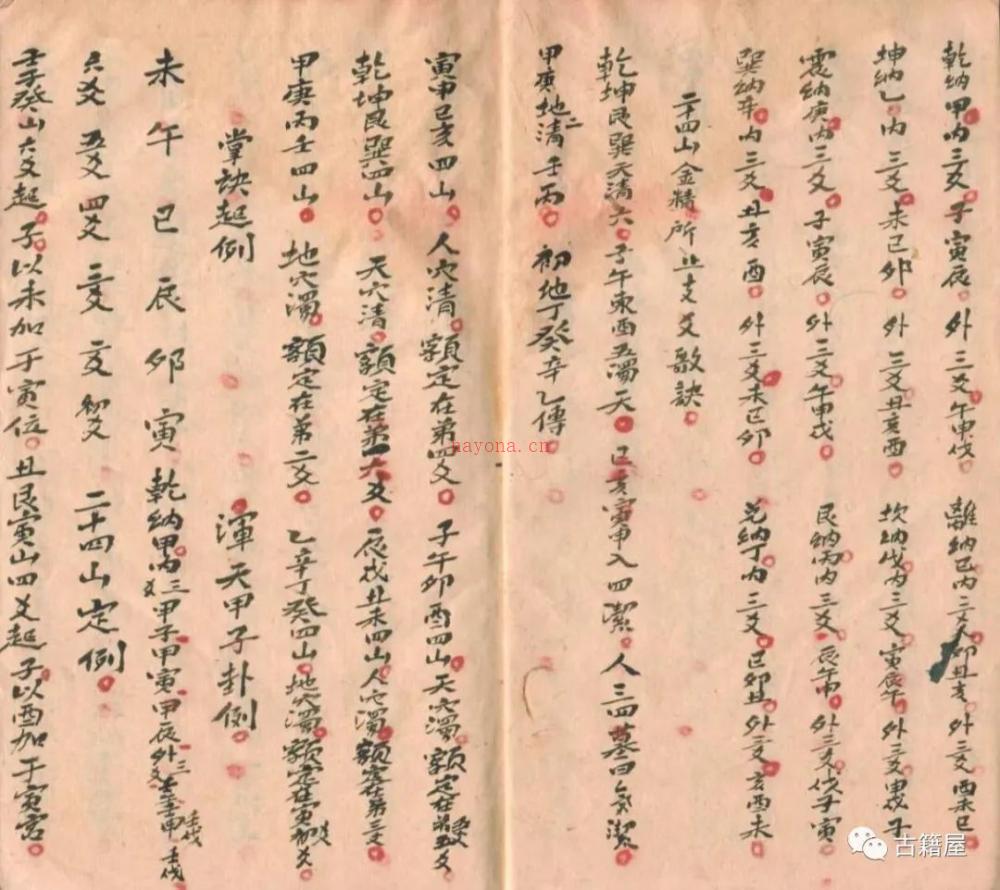 乾納甲内三爻子寅辰外三爻午申戌 離納己内三爻卯丑亥外三爻酉未巳
坤納乙内三爻未巳卯外三爻丑亥酉 坎納戊内三爻寅辰午外三爻申戌子
震納庚内三爻子寅辰外三爻午申戌 艮納丙内三爻辰午申外三爻戌子寅
巽納辛内三爻丑亥酉外三爻未巳卯 兌納丁内三爻巳卯丑外三爻亥酉未
二十四山金精所止支爻歌訣
乾坤艮巽天清六子午東西五濁天巳亥寅申入四潔人三四墓四氣潔
甲庚地清二壬丙初地丁癸辛乙傳
寅申巳亥四山人穴清額定在第四爻子午卯酉四山天穴濁額定在第五爻
乾坤艮巽四山天穴清額定在第六爻辰戌丑未四山人穴濁額定在第三爻
甲庚丙壬四山地穴濁額定在第二爻乙辛丁癸四山地穴濁額定在初爻
掌訣起例 渾天甲子卦例
未午巳辰卯寅乾納甲内三爻甲子甲寅甲辰外三爻壬午壬申壬戌
六爻五爻四爻三爻二爻初爻 二十四山定例
壬子癸山六爻起子以未加于寅位丑艮寅山四爻起子以酉加于寅宮
nayona.cn
古籍屋